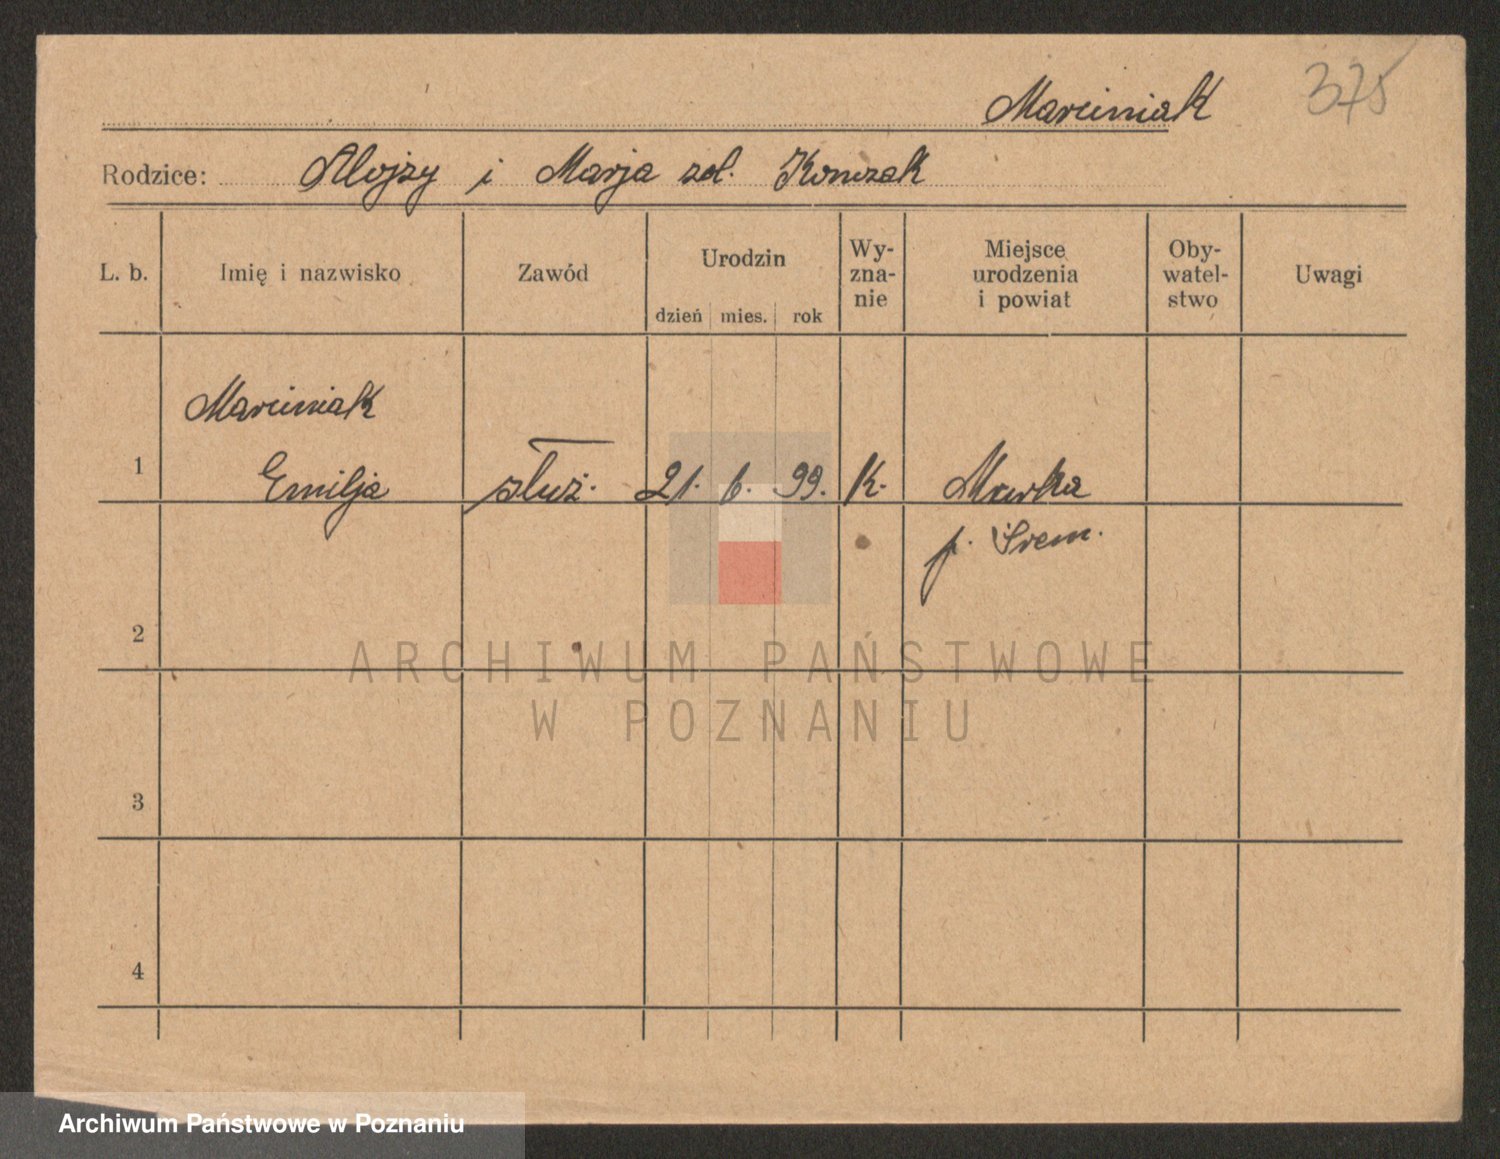 375
Marciniak
Rodzice: Alojzy i Marja zd. Konczak
L. b. Imię i nazwisko Zawód Urodzin dzień mies. rok Wy-zna-nie Miejsce urodzenia i powiat Oby-watel-stwo Uwagi
Marciniak
1 Emilja służ. 21. 6. 99. K. Murka
p. Śrem.
2
ARCHIWUM PAŃSTWOWE
W POZNANIU
3
4
Archiwum Państwowe w Poznaniu